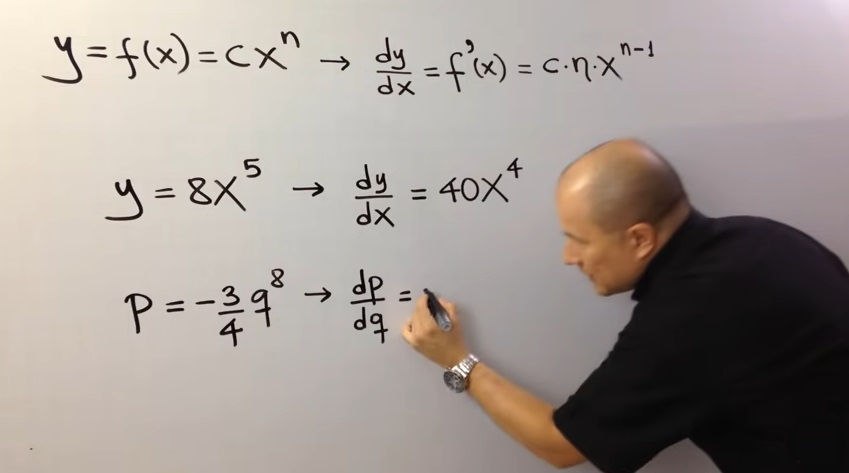 y = f(x) = cxⁿ → dy/dx = f'(x) = c·n·xⁿ⁻¹
y = 8x⁵ → dy/dx = 40x⁴
p = -3/4 q⁸ → dp/dq =